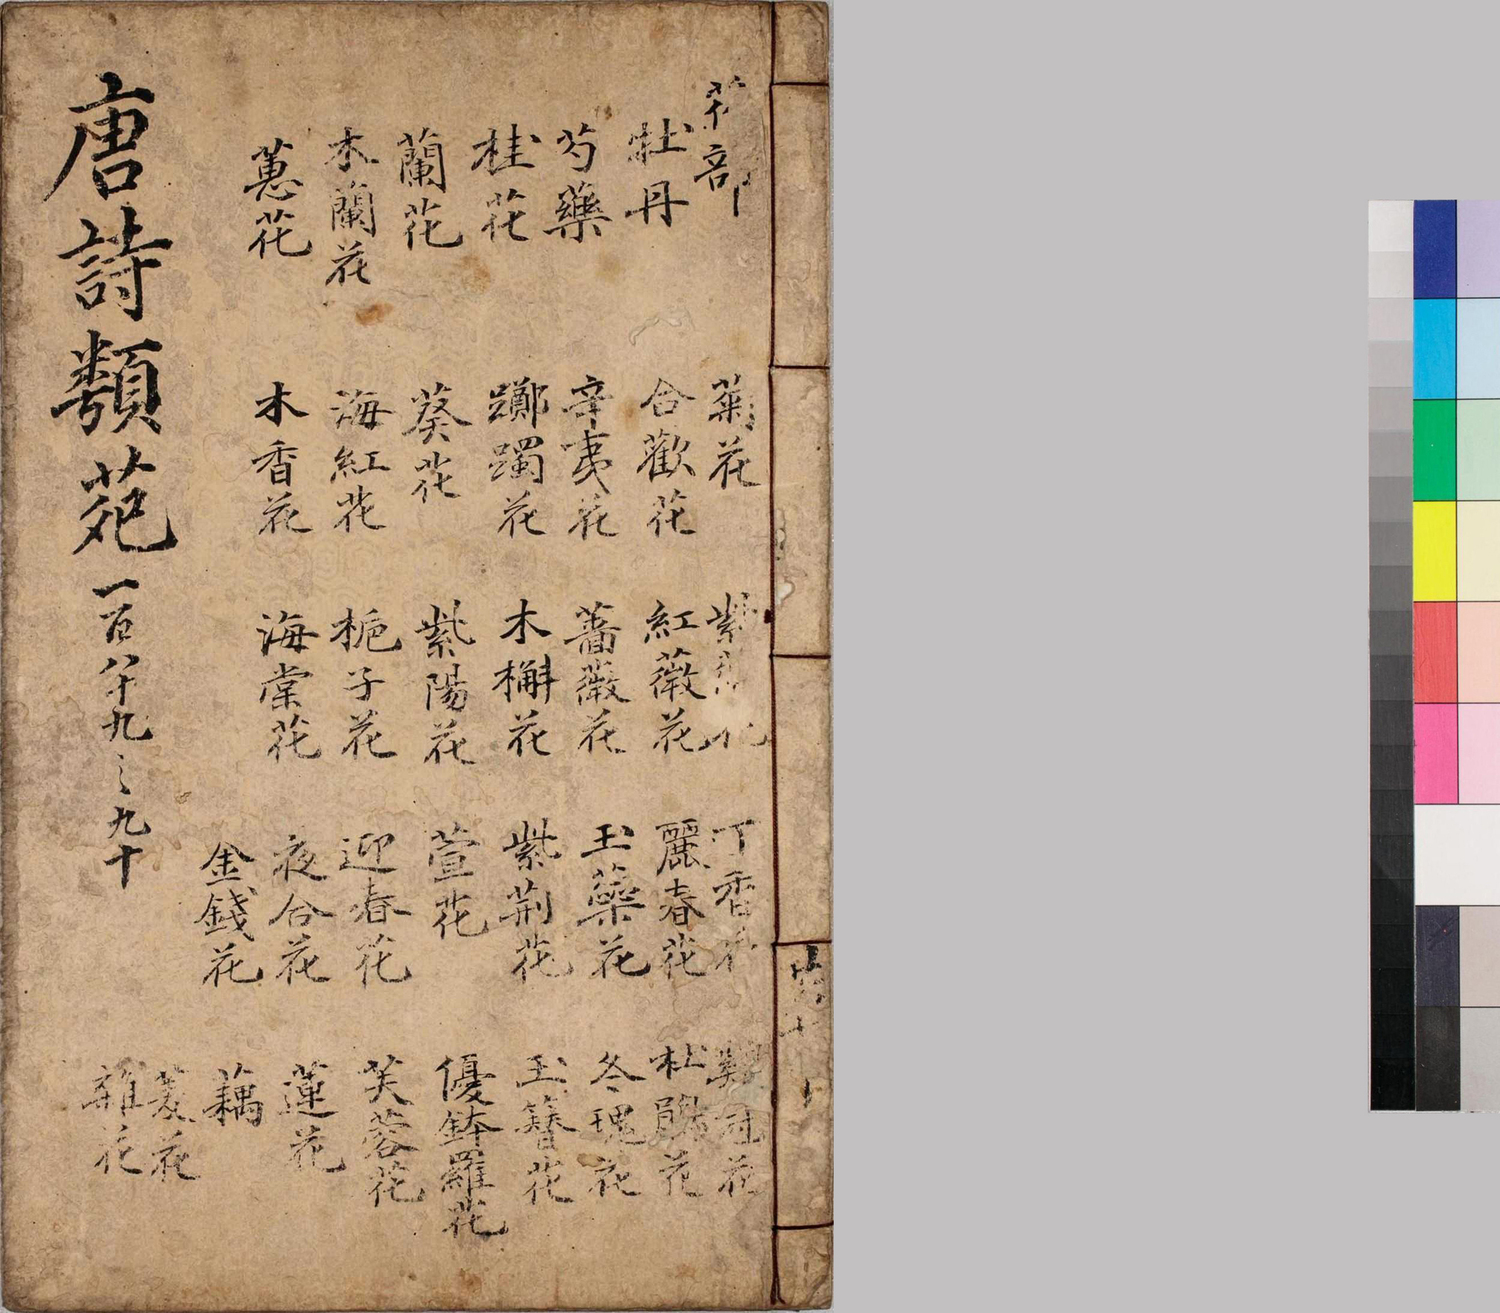 部
牡丹
芍藥
桂花
蘭花
木蘭花
蕙花
菊花
合歡花
辛夷花
躑躅花
葵花
海紅花
木香花
紫
紅薇花
薔薇花
木槲花
紫陽花
梔子花
海棠花
丁香花
麗春花
玉蘂花
紫荊花
萱花
迎春花
夜合花
金錢花
雞冠花
杜鵑花
冬瑰花
玉簪花
優鉢羅花
芙蓉花
蓮花
藕
菱花
雜花
唐詩類苑 一百八十九之九十